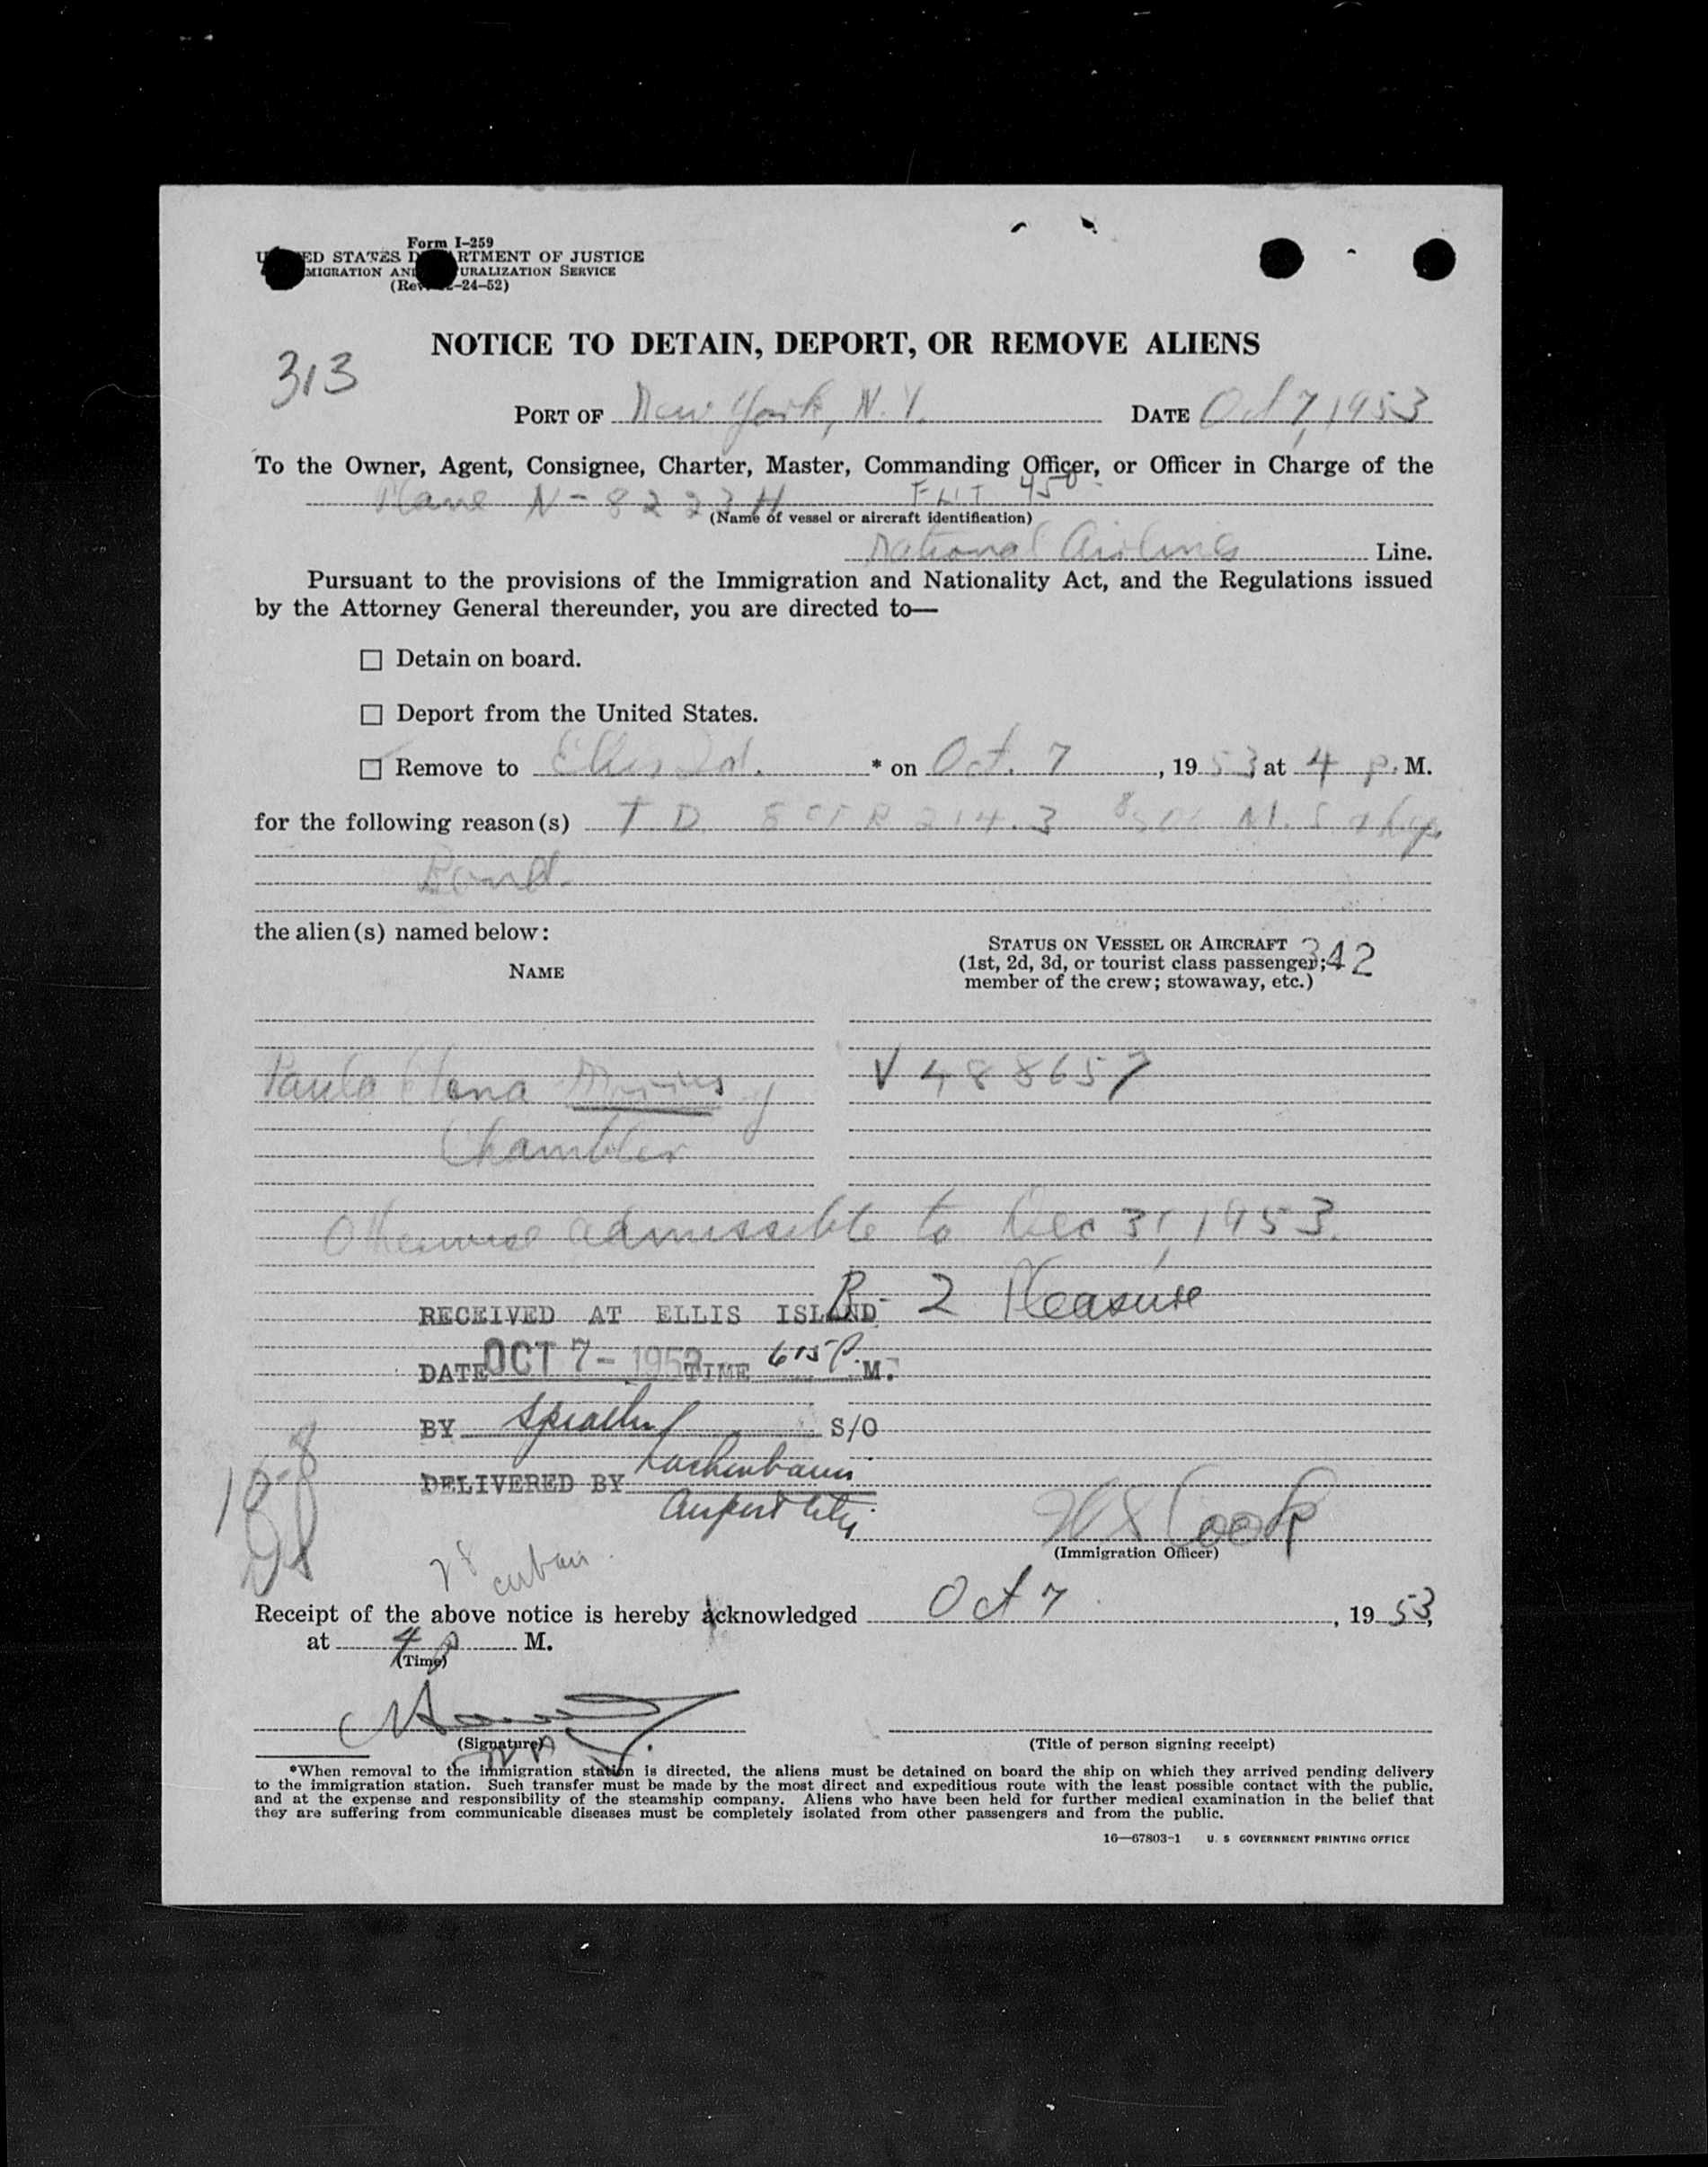 Form I-259
ED STATES D RTMENT OF JUSTICE
MIGRATION AND URALIZATION SERVICE
(Rev. -24-52)
NOTICE TO DETAIN, DEPORT, OR REMOVE ALIENS
313
PORT OF New York, N.Y. DATE Oct 7, 1953
To the Owner, Agent, Consignee, Charter, Master, Commanding Officer, or Officer in Charge of the
Plane N-8223H FLIT 450
(Name of vessel or aircraft identification)
National Airlines Line.
Pursuant to the provisions of the Immigration and Nationality Act, and the Regulations issued
by the Attorney General thereunder, you are directed to—
☐ Detain on board.
☐ Deport from the United States.
☐ Remove to Ellis Isd. * on Oct. 7, 1953 at 4 P. M.
for the following reason(s) T D 8 CFR 214.3 M. S.
Bond.
the alien(s) named below:
STATUS ON VESSEL OR AIRCRAFT 342
(1st, 2d, 3d, or tourist class passenger;
member of the crew; stowaway, etc.)
NAME
Paula Elena y V 488657
Chambler
Otherwise admissible to Dec 31, 1953.
B-2 Pleasure
RECEIVED AT ELLIS ISLAND
DATE OCT 7-1953 TIME 615 P. M.
BY S/O
DELIVERED BY
Airport City
10-8
W S Cook
(Immigration Officer)
28 cuban
Receipt of the above notice is hereby acknowledged Oct 7, 1953,
at 4 P M.
(Time)
(Signature)
(Title of person signing receipt)
*When removal to the immigration station is directed, the aliens must be detained on board the ship on which they arrived pending delivery
to the immigration station. Such transfer must be made by the most direct and expeditious route with the least possible contact with the public,
and at the expense and responsibility of the steamship company. Aliens who have been held for further medical examination in the belief that
they are suffering from communicable diseases must be completely isolated from other passengers and from the public.
16—67803-1 U. S GOVERNMENT PRINTING OFFICE